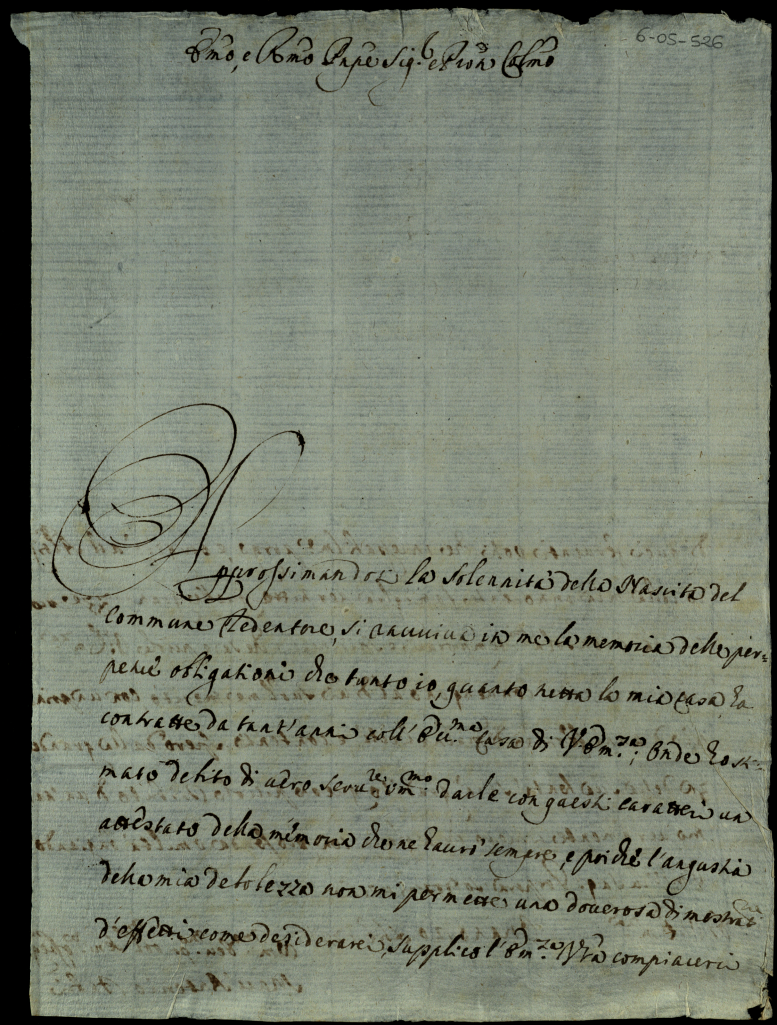 6-05-526
Emo, e Rmo Prnpe Sig.r e Pron Colmo
Approssimandosi la Solennità della Nascita del
commune Redentore, si ravviva in me la memoria delle per=
petue obligationi che tanto io, quanto tutta la mia Casa ha
contratte da tant'anni coll' Ecc.ma Casa di V Em.za; Onde ho sti=
mato debito di vero serv.re Um.mo darle con questi caratteri un
attestato della memoria che ne haurò sempre, e poiche l'angustia
della mia debolezza non mi permette una doverosa dimostrat
d'effetti come desiderarei, supplico l'Em.za Vra compiacersi